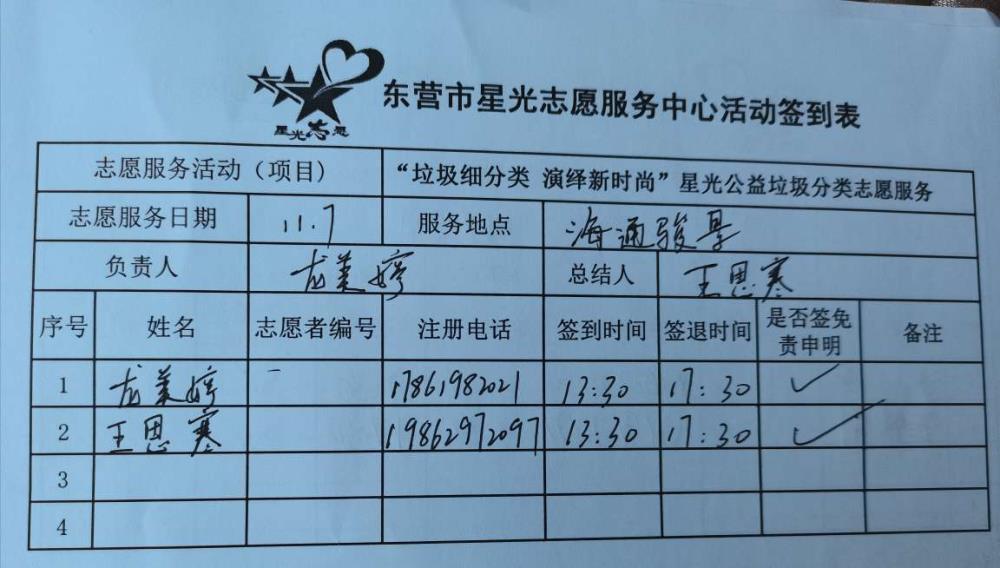 星光志愿
东营市星光志愿服务中心活动签到表
志愿服务活动（项目） “垃圾细分类 演绎新时尚”星光公益垃圾分类志愿服务
志愿服务日期 11.7 服务地点 海通骏景
负责人 龙美婷 总结人 王思寒
序号 姓名 志愿者编号 注册电话 签到时间 签退时间 是否签免责申明 备注
1 龙美婷 17861982021 13:30 17:30 ✓
2 王思寒 19862972097 13:30 17:30 ✓
3
4